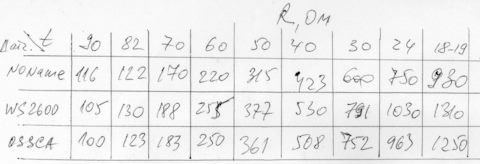 R, Ом
Датч. t 90 82 70 60 50 40 30 24 18-19
NONAME 116 122 170 220 315 423 600 750 980
WS2600 105 130 188 255 377 530 791 1030 1310
DS3CA 100 123 183 250 361 508 752 963 1250